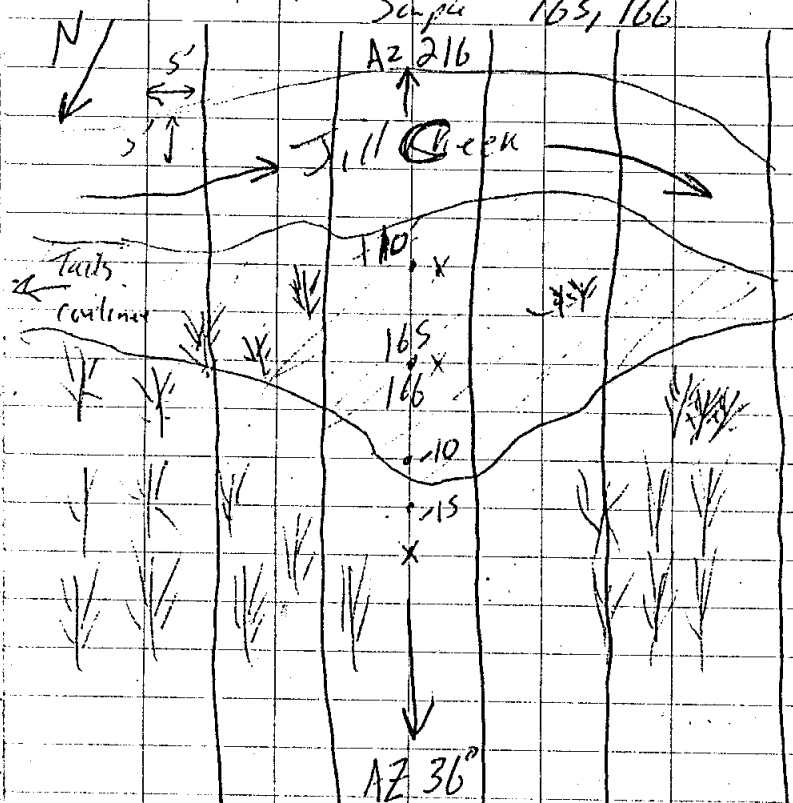 Sample 165, 166
N
5'
5'
AZ 216
Jill Creek
+10
x
Tails
continue
165
x
166
-10
-15
x
AZ 36°